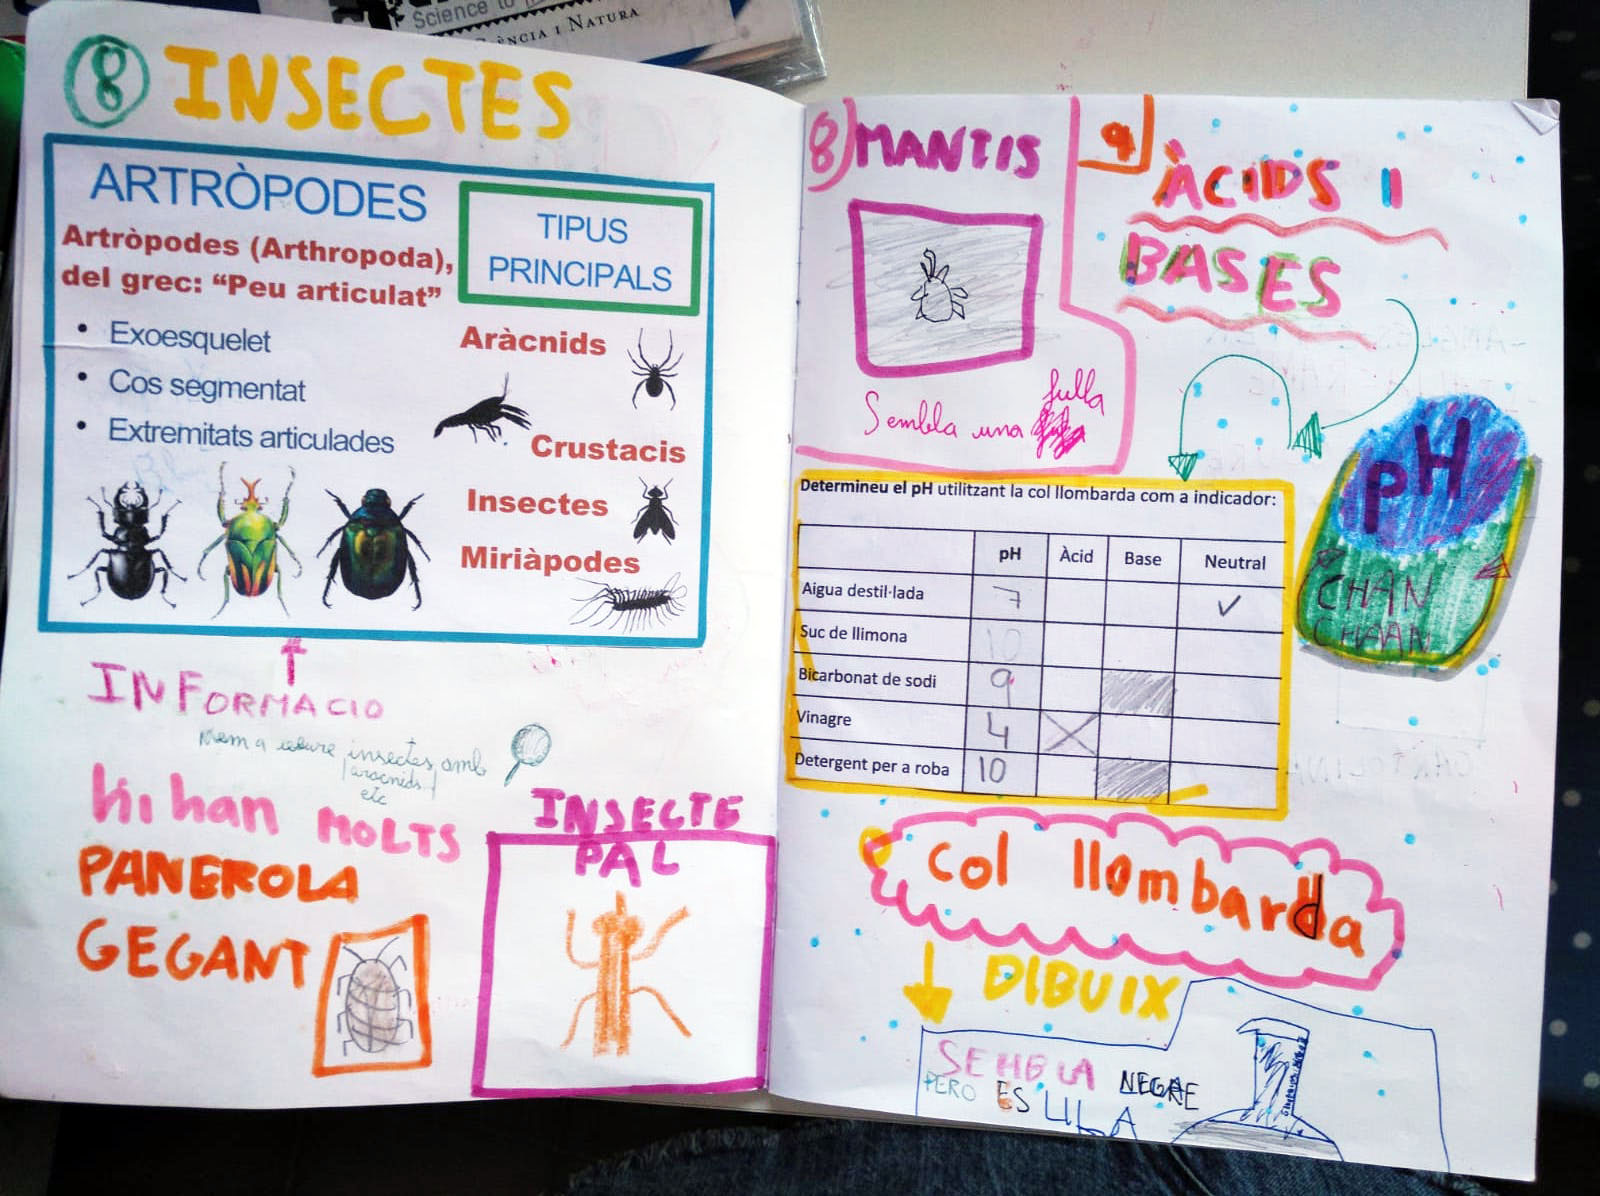 Science to
CIÈNCIA I NATURA
8 INSECTES
ARTRÒPODES
Artròpodes (Arthropoda),
del grec: “Peu articulat”
• Exoesquelet
• Cos segmentat
• Extremitats articulades
TIPUS
PRINCIPALS
Aràcnids
Crustacis
Insectes
Miriàpodes
INFORMACIO
insectes amb
aracnids
etc
Hi han MOLTS
PANEROLA
GEGANT
INSECTE
PAL
8) MANTIS
Sembla una fulla
9 ÀCIDS I
BASES
pH
CHAN
CHAAN
Determineu el pH utilitzant la col llombarda com a indicador:
pH Àcid Base Neutral
Aigua destil·lada 7 ✓
Suc de llimona 10
Bicarbonat de sodi 9
Vinagre 4 X
Detergent per a roba 10
col llombarda
DIBUIX
SEMBLA NEGRE
PERO ES LILA